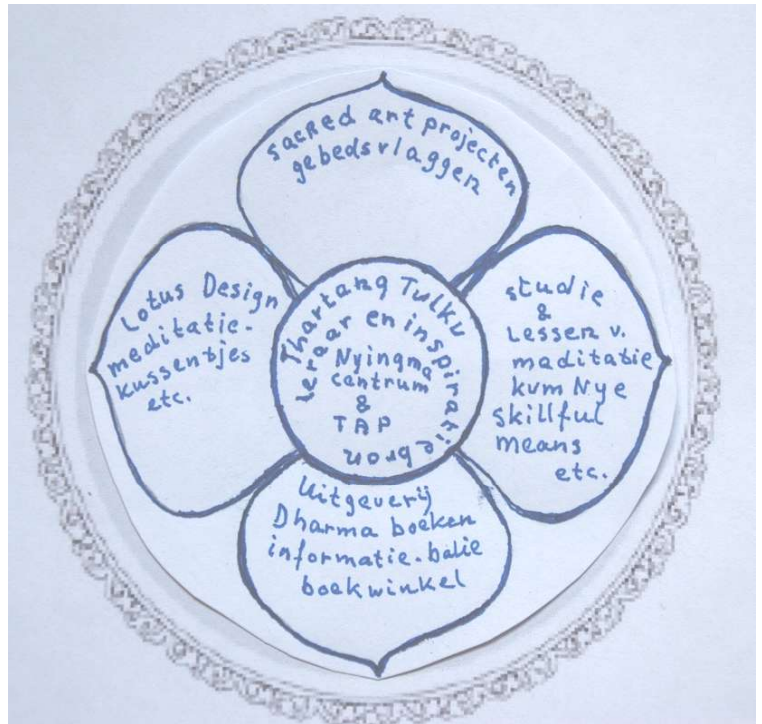 sacred art projecten
gebedsvlaggen
Lotus Design
meditatie-
kussentjes
etc.
Thartang Tulku
leraar en inspiratie bron
Nyingma
centrum
&
TAP
studie
&
Lessen v.
maditatie
kum Nye
skillful
means
etc.
Uitgeverij
Dharma boeken
informatie-balie
boekwinkel